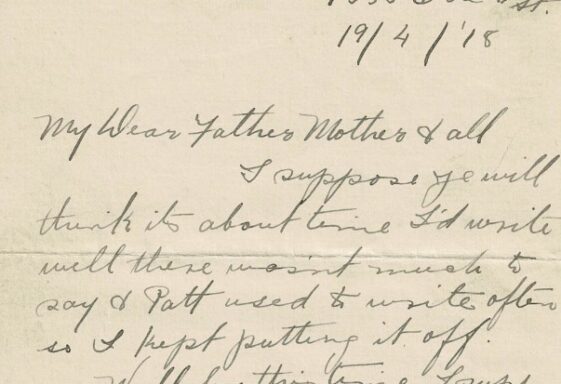 St.
19/4/'18
My Dear Father Mother & all
I suppose ye will
think its about time I'd write
well there wasn't much to
say & Patt used to write often
so I kept putting it off.
Well by this time I